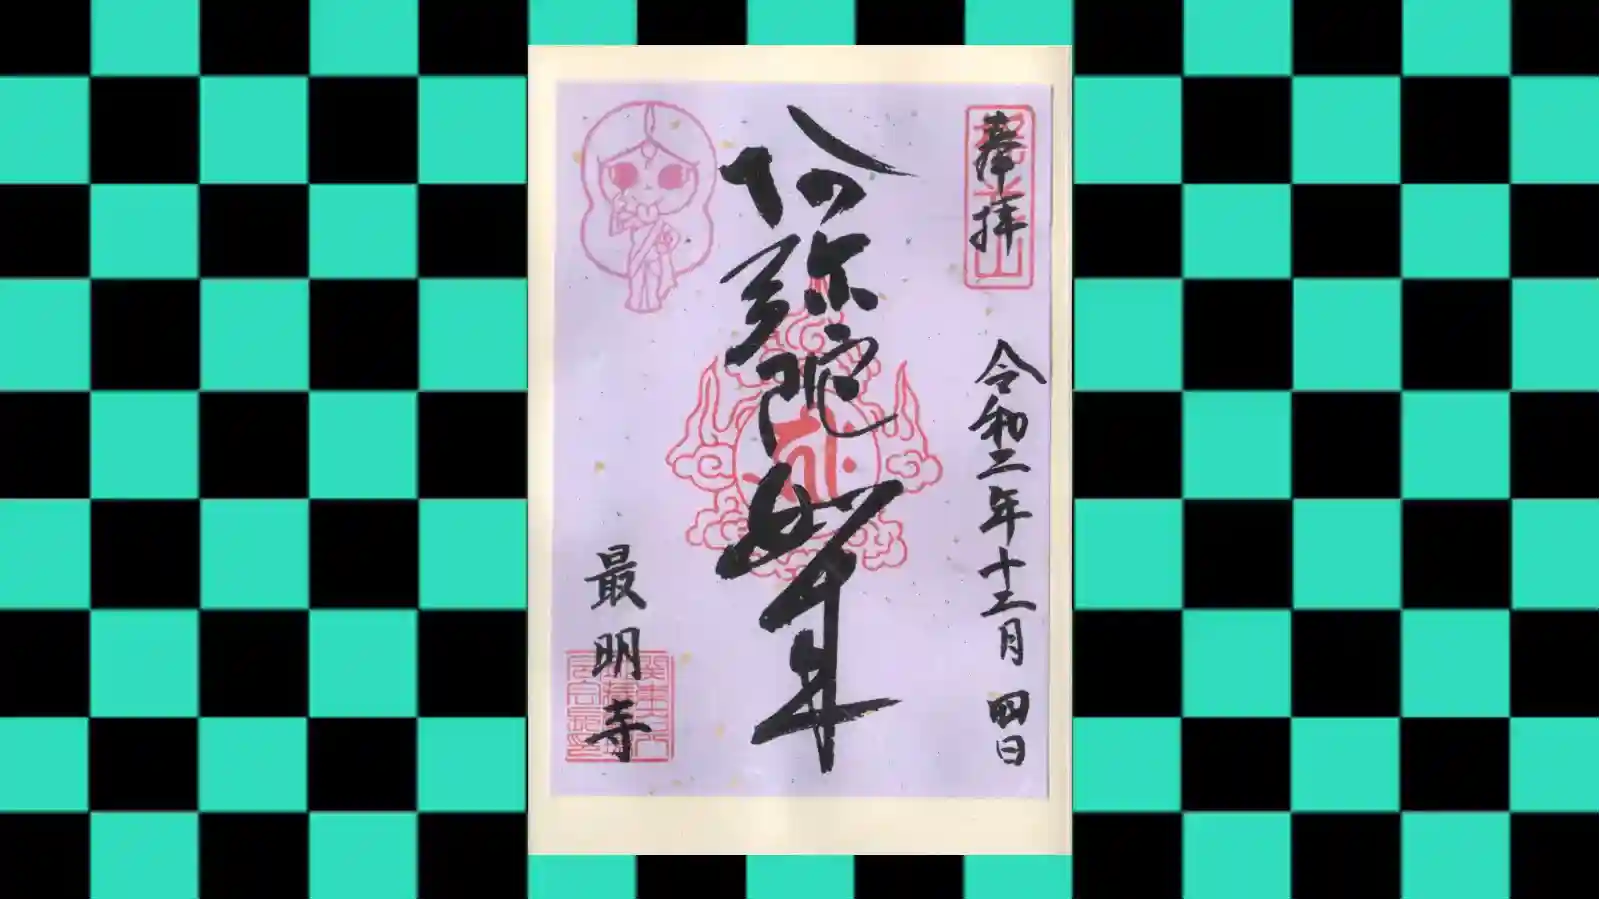 奉拝
令和二年十二月四日
阿弥陀如来
最明寺